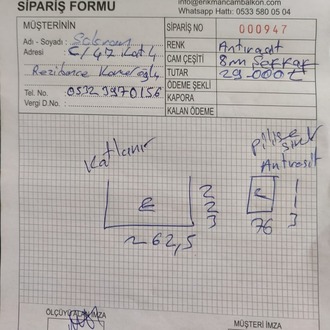 SİPARİŞ FORMU
info@erikmancambalkon.com
Whatsapp Hattı: 0533 580 05 04
MÜŞTERİNİN
SİPARİŞ NO 000947
Adı - Soyadı :
RENK Antirasit
Adresi : C/47 Kat 4
CAM ÇEŞİTİ 8m Şeffaf
TUTAR 29.000₺
ÖDEME ŞEKLİ
Tel. No. 0532 3970156
KAPORA
Vergi D.No. :
KALAN ÖDEME
Katlanır
pilise
sinek
Antirasit
2
2
3
262,5
1
1
3
76
ÖLÇÜYÜ ALAN İMZA
MÜŞTERİ İMZA